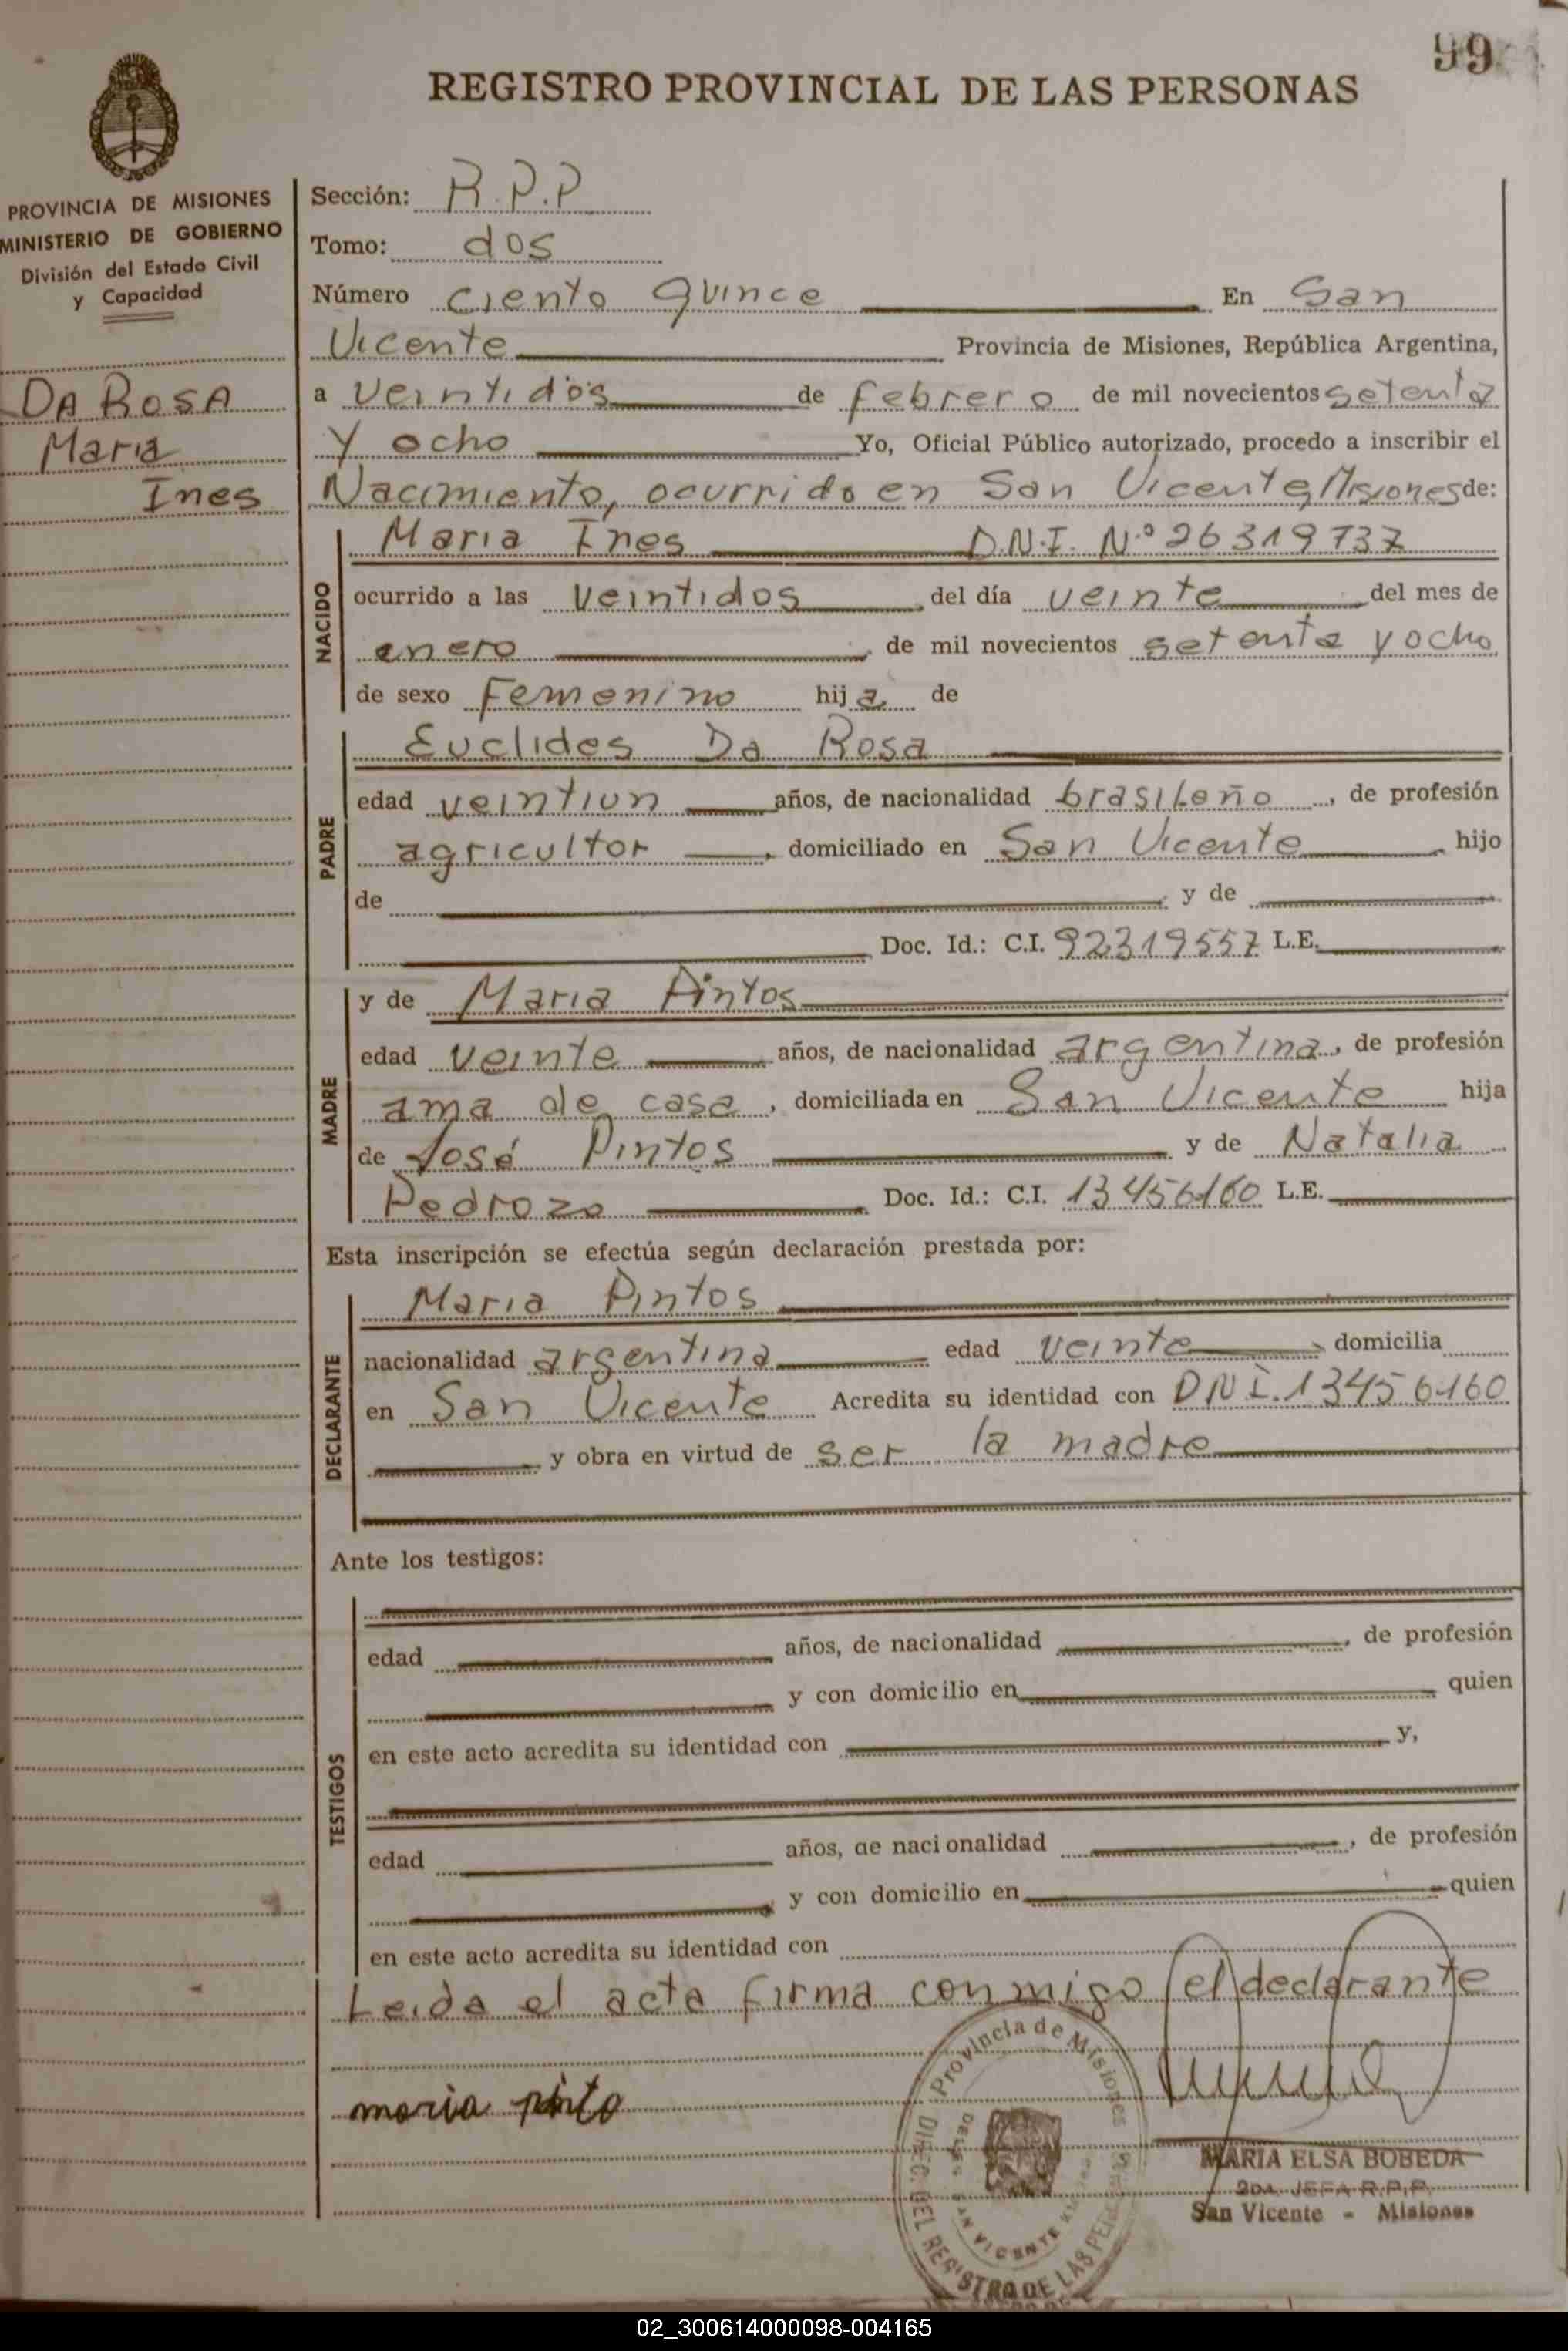 99
REGISTRO PROVINCIAL DE LAS PERSONAS
PROVINCIA DE MISIONES
MINISTERIO DE GOBIERNO
División del Estado Civil
y Capacidad
DA ROSA
Maria
Ines
Sección: R.P.P
Tomo: dos
Número ciento quince En San
Vicente Provincia de Misiones, República Argentina,
a veintidós de febrero de mil novecientos setenta
y ocho Yo, Oficial Público autorizado, procedo a inscribir el
Nacimiento, ocurrido en San Vicente, Misiones de:
NACIDO
Maria Ines D.N.I. Nº 26319737
ocurrido a las veintidos del día veinte del mes de
enero de mil novecientos setenta y ocho
de sexo Femenino hija de
PADRE
Euclides Da Rosa
edad veintiun años, de nacionalidad brasileño, de profesión
agricultor, domiciliado en San Vicente hijo
de y de
Doc. Id.: C.I. 92319557 L.E.
MADRE
y de Maria Pintos
edad veinte años, de nacionalidad argentina, de profesión
ama de casa, domiciliada en San Vicente hija
de José Pintos y de Natalia
Pedrozo Doc. Id.: C.I. 13456160 L.E.
Esta inscripción se efectúa según declaración prestada por:
DECLARANTE
Maria Pintos
nacionalidad argentina edad veinte domicilia
en San Vicente Acredita su identidad con DNI. 13456160
y obra en virtud de ser la madre
Ante los testigos:
TESTIGOS
edad años, de nacionalidad, de profesión
y con domicilio en quien
en este acto acredita su identidad con y,
edad años, de nacionalidad, de profesión
y con domicilio en quien
en este acto acredita su identidad con
Leida el acta firma conmigo el declarante
maria pinto
Provincia de Misiones
DIREC. DEL REGISTRO DE LAS PER
SAN VICENTE
MARIA ELSA BOBEDA
2DA. JEFA R.P.P.
San Vicente - Misiones
02_300614000098-004165